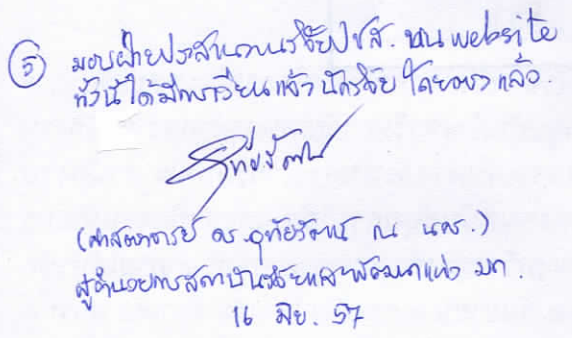 ⑤ มอบฝ่ายประสานงานวิจัยปชส. บน website
ทั้งนี้ได้มีการเวียนแจ้งนักวิจัยโดยตรงแล้ว.
อุทัยรัตน์
(ศาสตราจารย์ ดร.อุทัยรัตน์ ณ นคร.)
ผู้อำนวยการสถาบันวิจัยและพัฒนาแห่ง มก.
16 มิย. 57